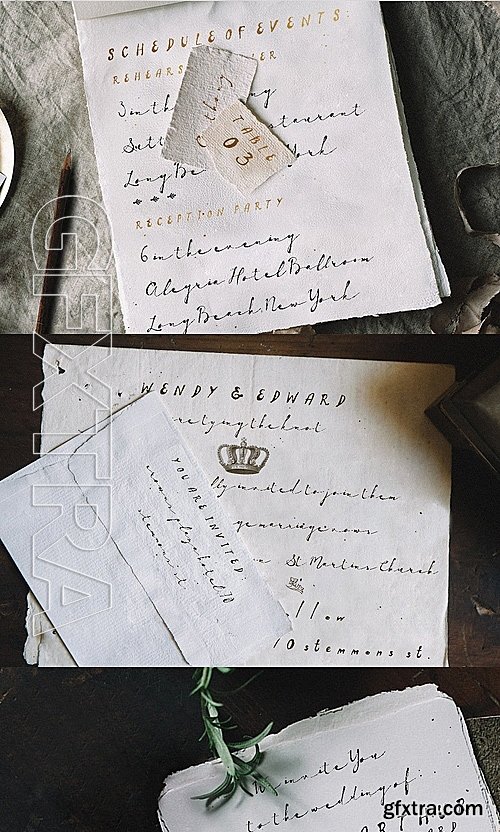 SCHEDULE OF EVENTS
REHEARS
3 in th
urant
Long Be rk
TABLE
03
RECEPTION PARTY
6 in the evening
Alegria Hotel Ballroom
Long Beach, New York
WENDY & EDWARD
re tying the knot
lly invited to join them
ge marriage vows
St Martins Church
llow
10 stemmons st.
YOU ARE INVITED
We invite You
to the wedding of
GFXTRA
gfxtra.com